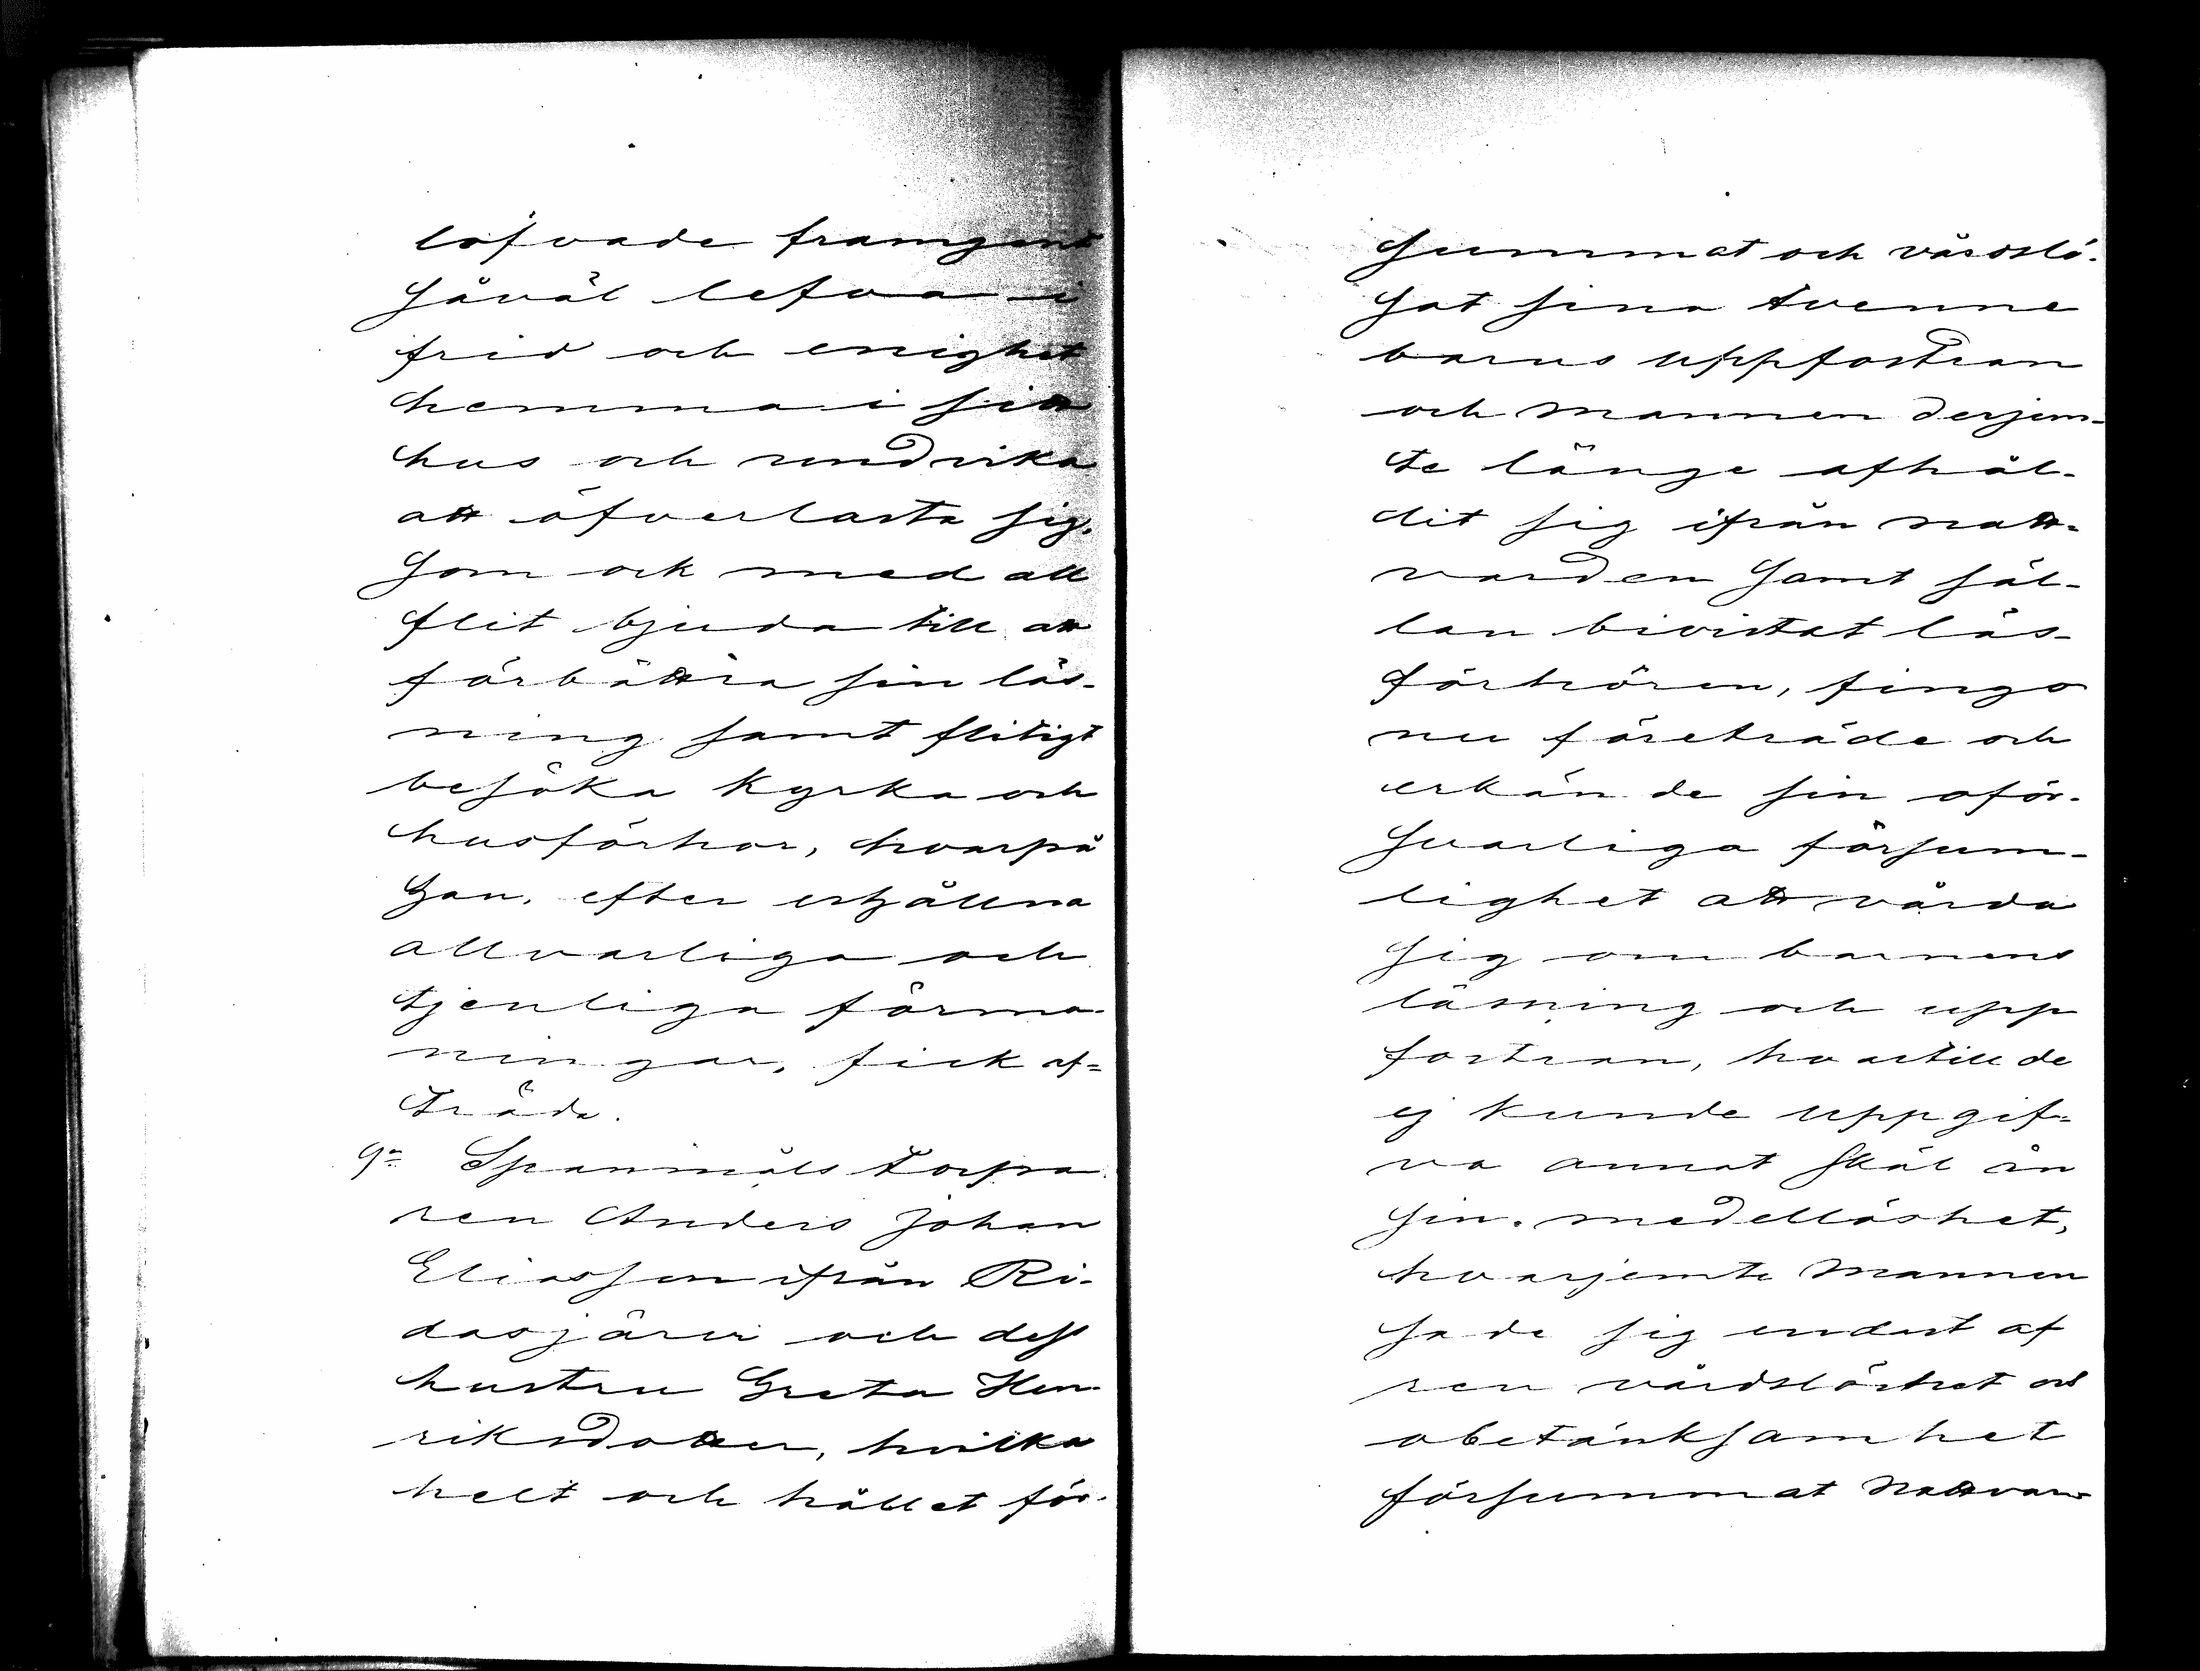 lofvade framgent
såväl lefva i
frid och enighet
hemma i sitt
hus och undvika
att öfverlasta sig,
som ock med all
flit bjuda till att
förbättra sin läs-
ning samt flitigt
besöka kyrka och
husförhör, hvarpå
han, efter erhållna
allvarliga och
tjenliga förma-
ningar, fick af-
träda.
9o Spanmåls torpa
ren Anders Johan
Eliasson ifrån Ri-
dasjärvi och dess
hustru Greta Hen-
riksdotter, hvilka
helt och hållet för-
summat och vårdslö-
sat sina tvenne
barns uppfostran
och mannen derjem-
te länge afhål-
lit sig ifrån natt-
varden samt säl-
lan bivistat läs-
förhören, fingo
nu företräde och
erkände sin oför-
svarliga försum-
lighet att vårda
sig om barnens
läsning och upp
fostran, hvartill de
ej kunde uppgif-
va annat skäl än
sin medellöshet,
hvarjemte mannen
sade sig endast af
ren vårdslöshet och
obetänksamhet
försummat nattvar-